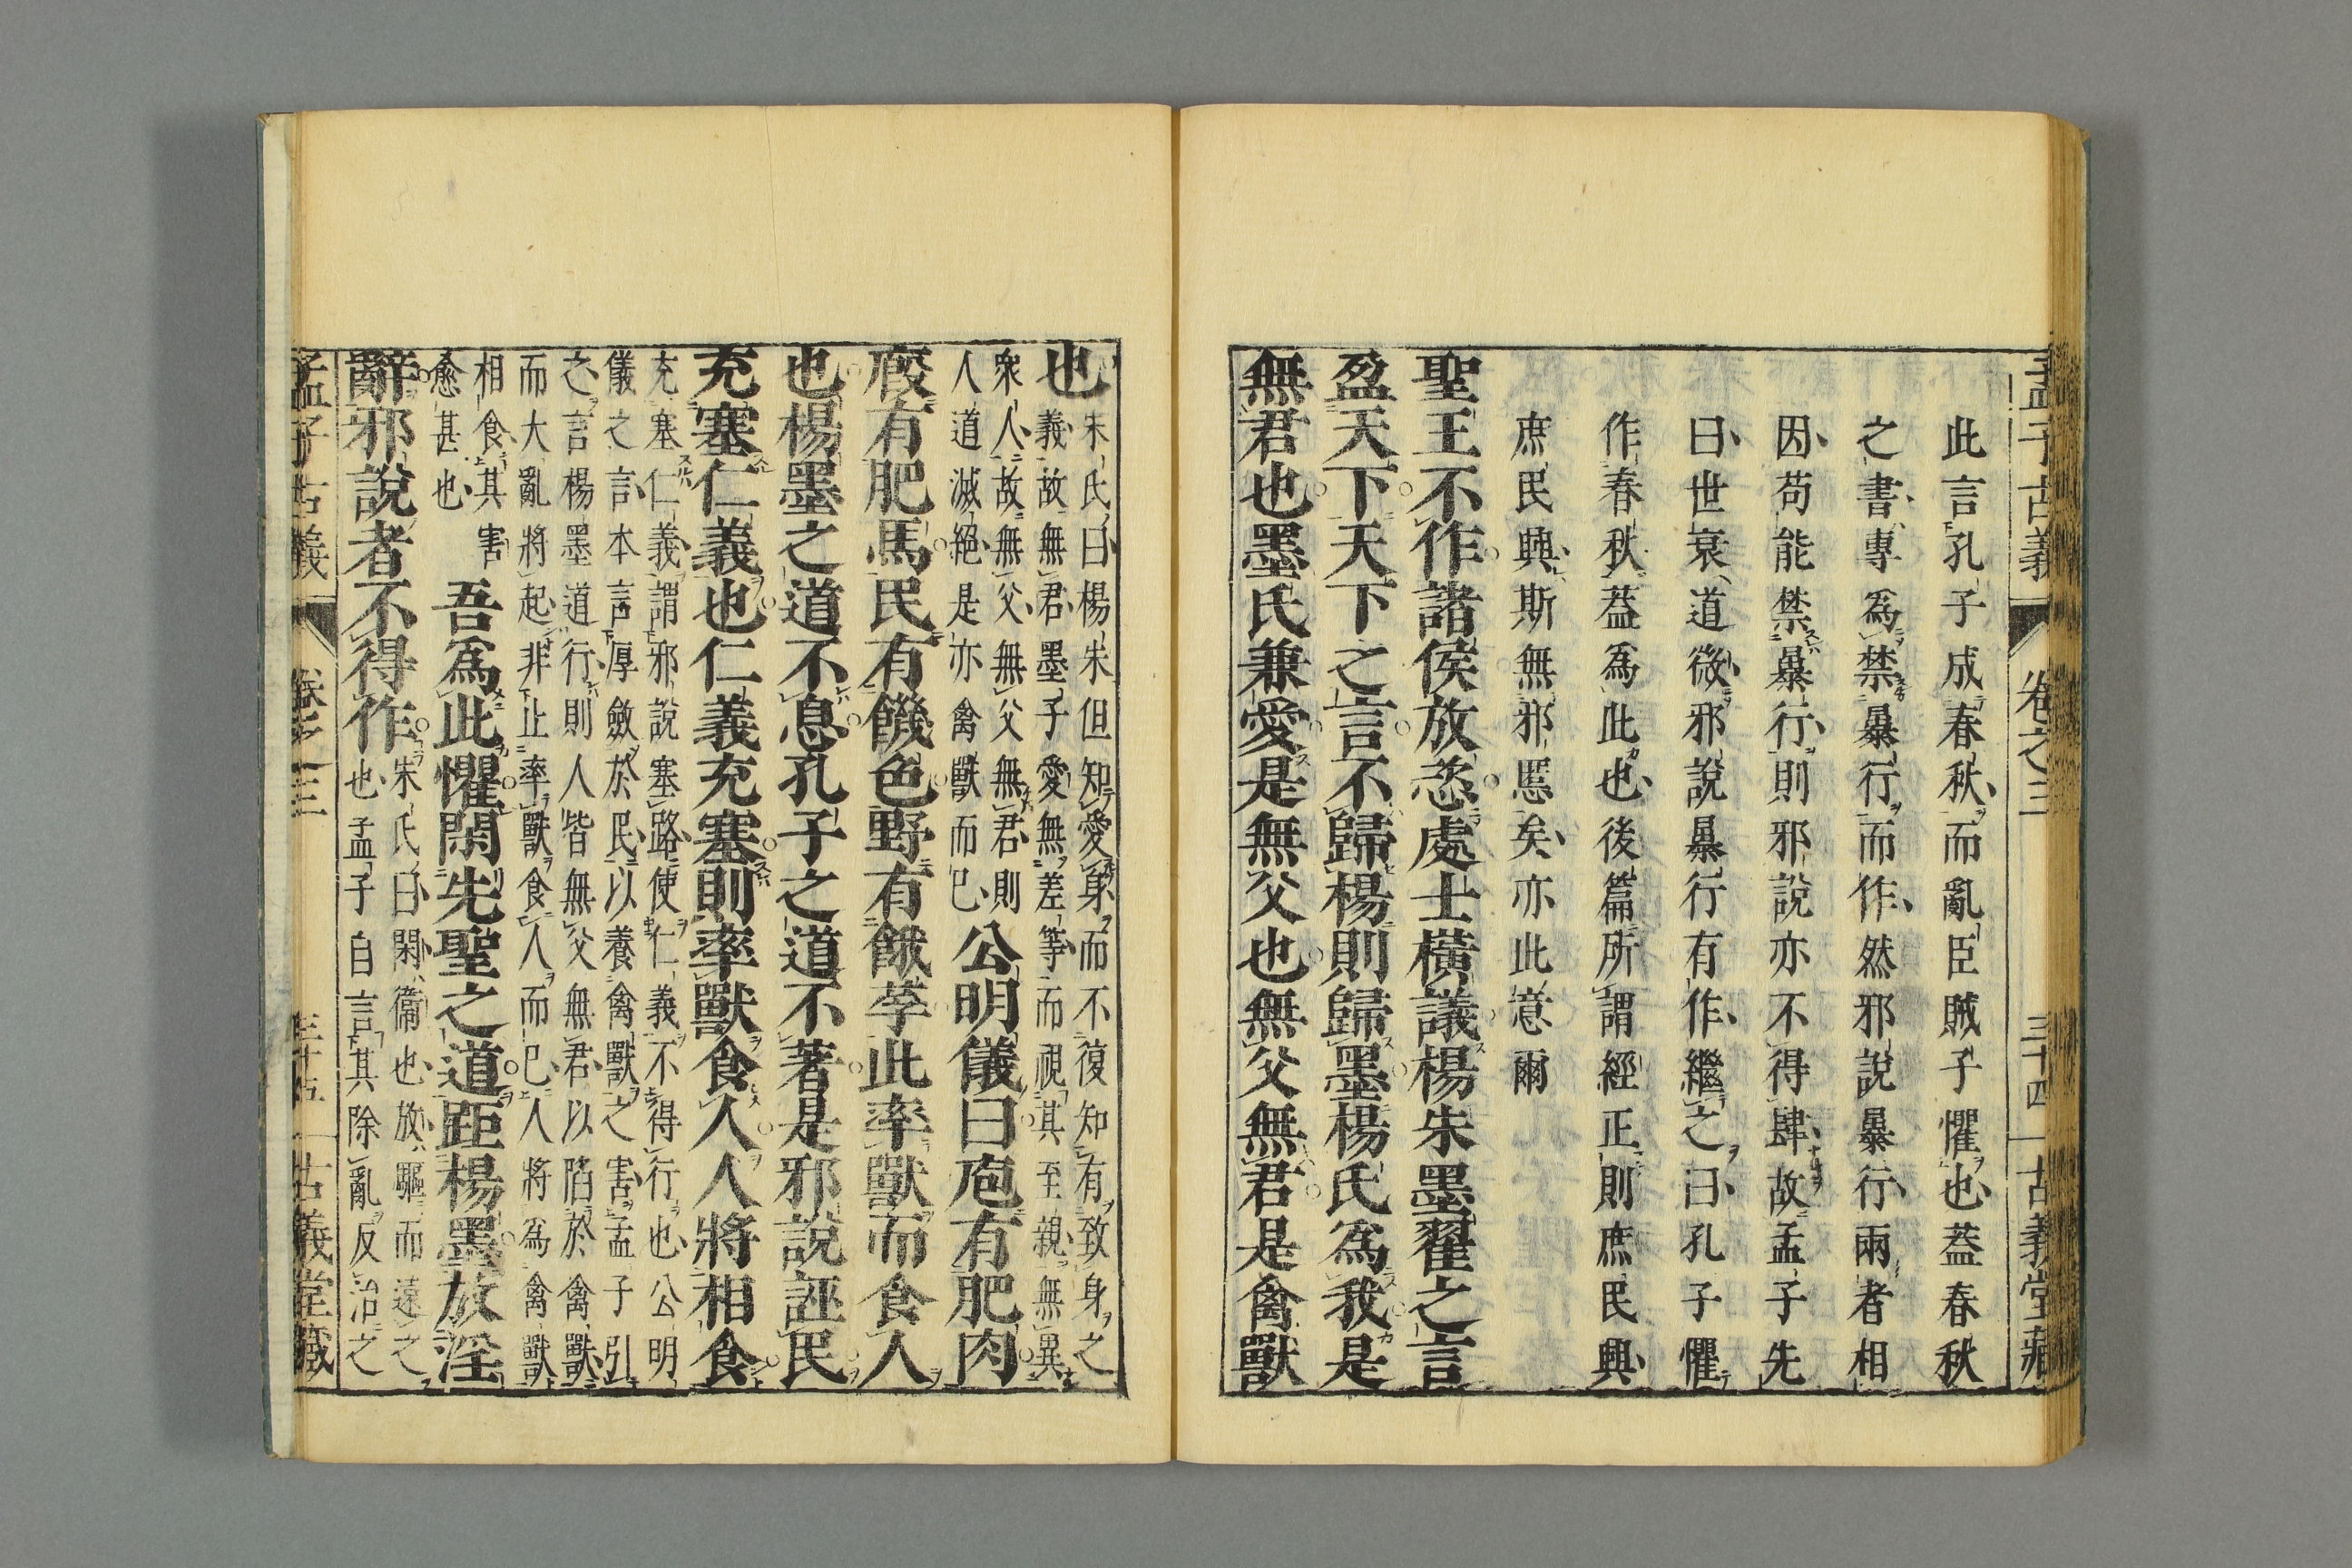 孟子古義 卷之三 三十四 古義堂藏
此言孔子成春秋而亂臣賊子懼也蓋春秋
之書專爲禁暴行而作然邪說暴行兩者相
因苟能禁暴行則邪說亦不得肆故孟子先
曰世衰道微邪說暴行有作繼之曰孔子懼
作春秋蓋爲此也後篇所謂經正則庶民興
庶民興斯無邪慝矣亦此意爾
聖王不作諸侯放恣處士橫議楊朱墨翟之言
盈天下天下之言不歸楊則歸墨楊氏爲我是
無君也墨氏兼愛是無父也無父無君是禽獸
也
朱氏曰楊朱但知愛身而不復知有致身之
義故無君墨子愛無差等而視其至親無異
衆人故無父無父無君則
人道滅絕是亦禽獸而已
公明儀曰庖有肥肉
廄有肥馬民有饑色野有餓莩此率獸而食人
也楊墨之道不息孔子之道不著是邪說誣民
充塞仁義也仁義充塞則率獸食人人將相食
充塞仁義謂邪說塞路使仁義不得行也公明
儀之言本言厚斂於民以養禽獸之害孟子引
之言楊墨道行則人皆無父無君以陷於禽獸
而大亂將起非止率獸食人而已人將爲禽獸
相食其害
愈甚也
吾爲此懼閑先聖之道距楊墨放淫
辭邪說者不得作
朱氏曰閑衞也放驅而遠之
也孟子自言其除亂反治之
孟子古義 卷之三 三十五 古義堂藏